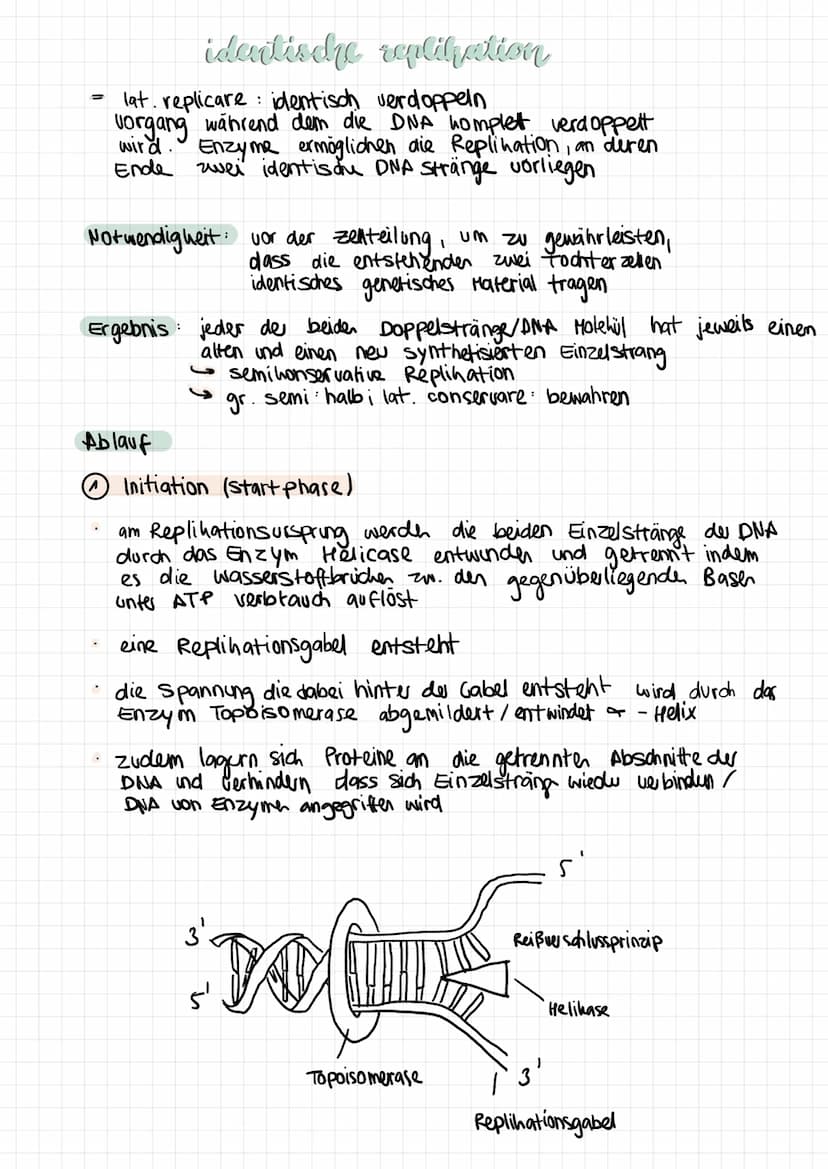 identische replikation
= lat. replicare : identisch verdoppeln
Vorgang während dem die DNA komplett verdoppelt
wird. Enzyme ermöglichen die Replikation, an deren
Ende zwei identische DNA Stränge vorliegen
Notwendigkeit: vor der Zellteilung, um zu gewährleisten,
dass die entstehenden zwei Tochterzellen
identisches genetisches Material tragen
Ergebnis: jeder der beiden Doppelstränge/DNA Molekül hat jeweils einen
alten und einen neu synthetisierten Einzelstrang
↳ semikonservative Replikation
↳ gr. semi: halb; lat. conservare: bewahren
Ablauf
① Initiation (Startphase)
· am Replikationsursprung werden die beiden Einzelstränge der DNA
durch das Enzym Helicase entwunden und getrennt indem
es die Wasserstoffbrücken zw. den gegenüberliegenden Basen
unter ATP verbrauch auflöst
· eine Replikationsgabel entsteht
· die Spannung die dabei hinter der Gabel entsteht wird durch das
Enzym Topoisomerase abgemildert / entwindet α - Helix
· zudem lagern sich Proteine an die getrennten Abschnitte der
DNA und verhindern dass sich Einzelstränge wieder verbinden /
DNA von Enzymen angegriffen wird
5'
3'
Reißverschlussprinzip
5'
Helikase
Topoisomerase
3'
Replikationsgabel